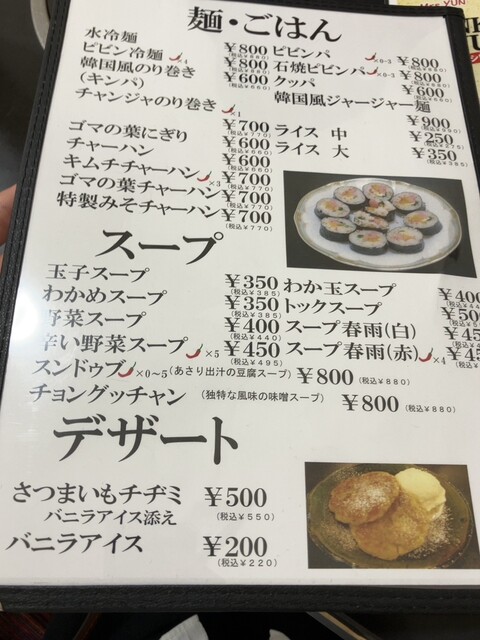 麺・ごはん
水冷麺 ¥800 (税込¥880)
ピビン冷麺 ×4 ¥800 (税込¥880)
韓国風のり巻き ¥600 (税込¥660)
(キンパ)
チャンジャのり巻き ×1 ¥700 (税込¥770)
ゴマの葉にぎり ¥600 (税込¥660)
チャーハン ¥600 (税込¥660)
キムチチャーハン ×3 ¥700 (税込¥770)
ゴマの葉チャーハン ¥700 (税込¥770)
特製みそチャーハン ¥700 (税込¥770)
ピビンパ ×0-3 ¥800
石焼ピビンパ ×0-3 ¥800
クッパ ¥600
韓国風ジャージャー麺 ¥900
ライス 中 ¥250
ライス 大 ¥350 (税込¥385)
スープ
玉子スープ ¥350 (税込¥385)
わかめスープ ¥350 (税込¥385)
野菜スープ ¥400 (税込¥440)
辛い野菜スープ ×5 ¥450 (税込¥495)
わか玉スープ ¥400
トックスープ
スープ春雨(白)
スープ春雨(赤) ×4
スンドゥブ ×0~5 (あさり出汁の豆腐スープ) ¥800 (税込¥880)
チョングッチャン (独特な風味の味噌スープ) ¥800 (税込¥880)
デザート
さつまいもチヂミ ¥500
バニラアイス添え (税込¥550)
バニラアイス ¥200
(税込¥220)